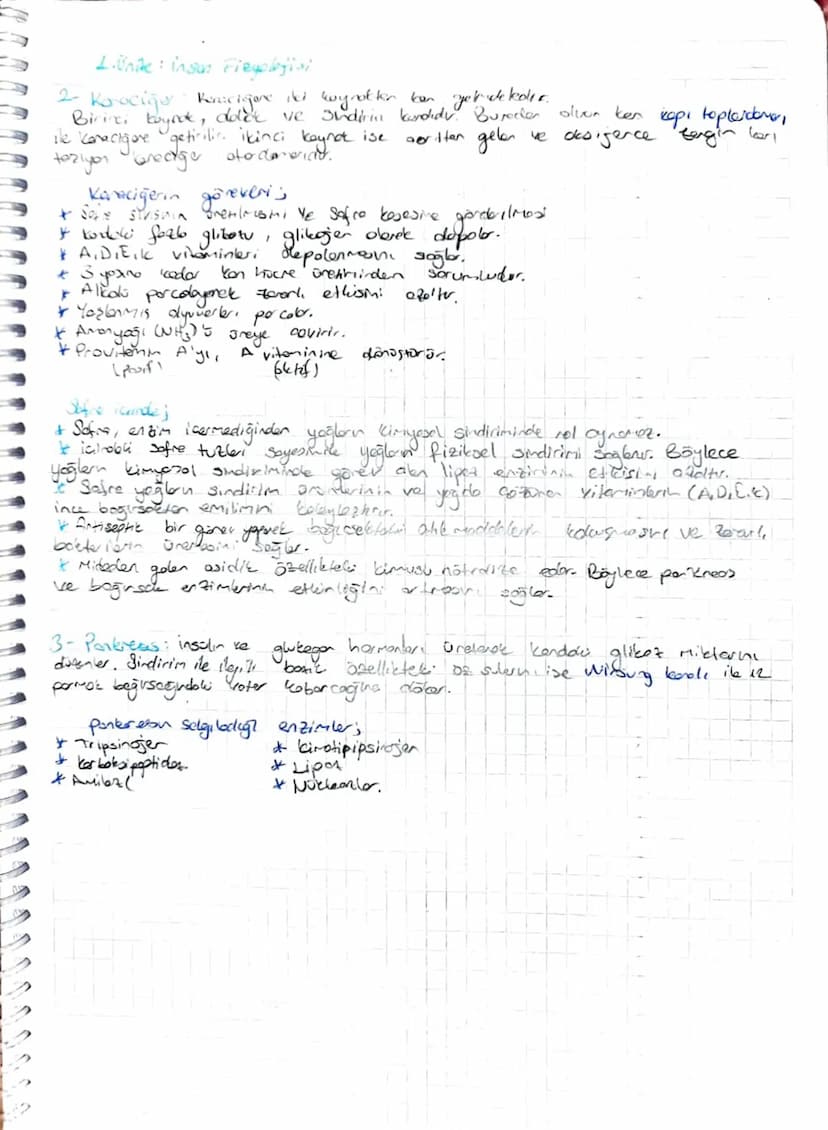 1.Ünite: İnsan Fizyolojisi
2- Karaciğer: Karaciğere iki kaynaktan kan gelmektedir.
Birinci kaynak, dalak ve sindirim kanalıdır. Buradan alınan kan kapı toplardamarı
ile karaciğere getirilir. ikinci kaynak ise aorttan gelen ve oksijence zengin kan
taşıyan karaciğer atardamarıdır.
Karaciğerin görevleri;
* Safra sıvısının üretilmesini ve Safra kesesine gönderilmesi
* kandaki fazla glikozu, glikojen olarak depolar.
* A,D,E,K vitaminleri depolanmasını sağlar.
* 3 yaşına kadar kan hücre üretiminden sorumludur.
* Alkolü parçalayarak zararlı etkisini azaltır.
* Yaşlanmış alyuvarları parçalar.
* Amonyağı (NH3)'ü üreye çevirir.
* Provitamin A'yı, A vitaminine dönüştürür.
(pasif) (aktif)
Safra içinde;
* Safra, enzim içermediğinden yağların kimyasal sindiriminde rol oynamaz.
* içindeki safra tuzları sayesinde yağların fiziksel sindirimi sağlanır. Böylece
yağların kimyasal sindiriminde görev alan lipaz enziminin etkisini azaltır.
* Safra yağların sindirim ürünlerinin ve yağda çözünen vitaminlerin (A,D,E,K)
ince bağırsaktan emilimini kolaylaştırır.
* Antiseptik bir görev yaparak bağırsaktaki atık maddelerin kokuşmasını ve zararlı
bakterilerin üremesini sağlar.
* Mideden gelen asidik özellikteki kimusu nötralize eder. Böylece pankreas
ve bağırsak enzimlerinin etkinliğini artmasını sağlar.
3- Pankreas: insülin ve glukagon hormonları üreterek kandaki glikoz miktarını
düzenler. Sindirim ile ilgili bazik özellikteki öz suların ise Wirsung kanalı ile 12
parmak bağırsağındaki vater kabarcığına döker.
Pankreasın salgıladığı enzimler;
* Tripsinojen * kimotipipsinojen
* karboksipeptidaz * Lipaz
* Amilaz * Nükleazlar.